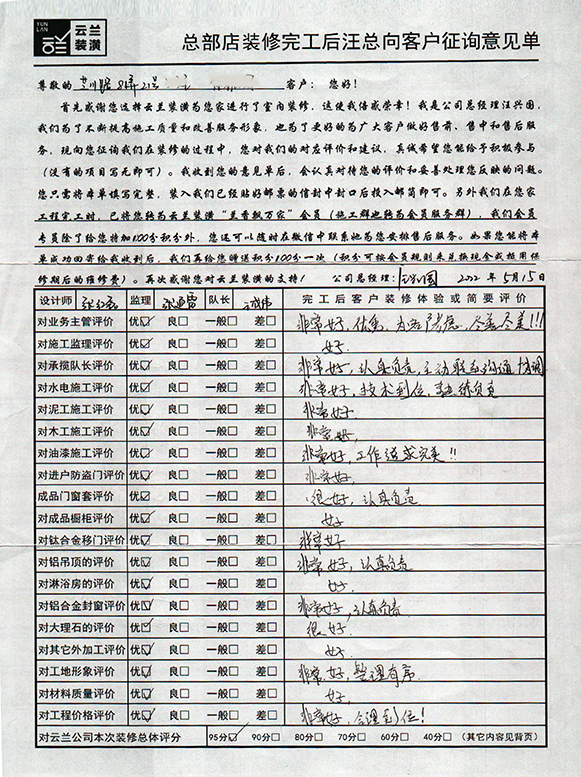 YUN LAN 云兰装潢
总部店装修完工后汪总向客户征询意见单
尊敬的 客户：您好！
首先感谢您选择云兰装潢为您家进行了室内装修，这使我倍感荣幸！我是公司总经理汪兴国，
我们为了不断提高施工质量和改善服务形象，也为了更好的为广大客户做好售前、售中和售后服
务，现向您征询我们在装修的过程中，您对我们的对应评价和建议，真诚希望您能给予积极参与
（没有的项目写无即可）。我收到您的意见单后，会认真对待您的评价和妥善处理您反映的问题。
您只需将本单填写完整，装入我们已经贴好邮票的信封中封口后投入邮筒即可。另外我们在您家
工程完工时，已将您转为云兰装潢“兰香飘万家”会员（施工群也转为会员服务群），我们会员
专员除了给您特加1000分积分外，您还可以随时在微信中联系她为您安排售后服务。如果您能将本
单成功回寄给我收到后，我们再给您赠送积分1000分一次（积分可按会员规则来兑换现金或抵用保
修期后的维修费）。再次感谢您对云兰装潢的支持！ 公司总经理： 2022年5月15日
设计师 监理 队长 完工后客户装修体验或简要评价
对业务主管评价 优☑ 良□ 一般□ 差□ 非常好，优秀，为 尽善尽美!!!
对施工监理评价 优☑ 良□ 一般□ 差□ 好．
对承揽队长评价 优☑ 良□ 一般□ 差□ 非常好，认真负责，主动联系沟通协调
对水电施工评价 优☑ 良□ 一般□ 差□ 非常好，技术到位，负责
对泥工施工评价 优☑ 良□ 一般□ 差□ 非常好，
对木工施工评价 优☑ 良□ 一般□ 差□ 非常好，
对油漆施工评价 优☑ 良□ 一般□ 差□ 非常好，工作追求完美!!
对进户防盗门评价 优☑ 良□ 一般□ 差□ 非常好，
成品门窗套评价 优☑ 良□ 一般□ 差□ 很好，认真负责
对成品橱柜评价 优☑ 良□ 一般□ 差□ 好
对钛合金移门评价 优☑ 良□ 一般□ 差□ 非常好
对铝吊顶的评价 优☑ 良□ 一般□ 差□ 非常好，认真负责
对淋浴房的评价 优☑ 良□ 一般□ 差□ 好．
对铝合金封窗评价 优☑ 良□ 一般□ 差□ 非常好，认真负责
对大理石的评价 优☑ 良□ 一般□ 差□ 很好．
对其它外加工评价 优☑ 良□ 一般□ 差□ 好，
对工地形象评价 优☑ 良□ 一般□ 差□ 非常好，管理有序
对材料质量评价 优☑ 良□ 一般□ 差□ 好．
对工程价格评价 优☑ 良□ 一般□ 差□ 非常好，合理到位!
对云兰公司本次装修总体评分 95分☑ 90分□ 80分□ 70分□ 60分□ 40分□ （其它内容见背页）